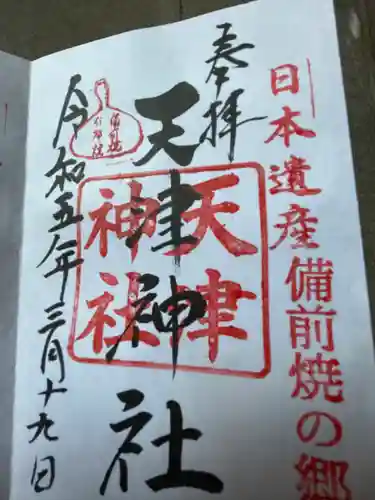 日本遺産備前焼の郷
奉拝
天津神社
天津
神社
令和五年三月十九日